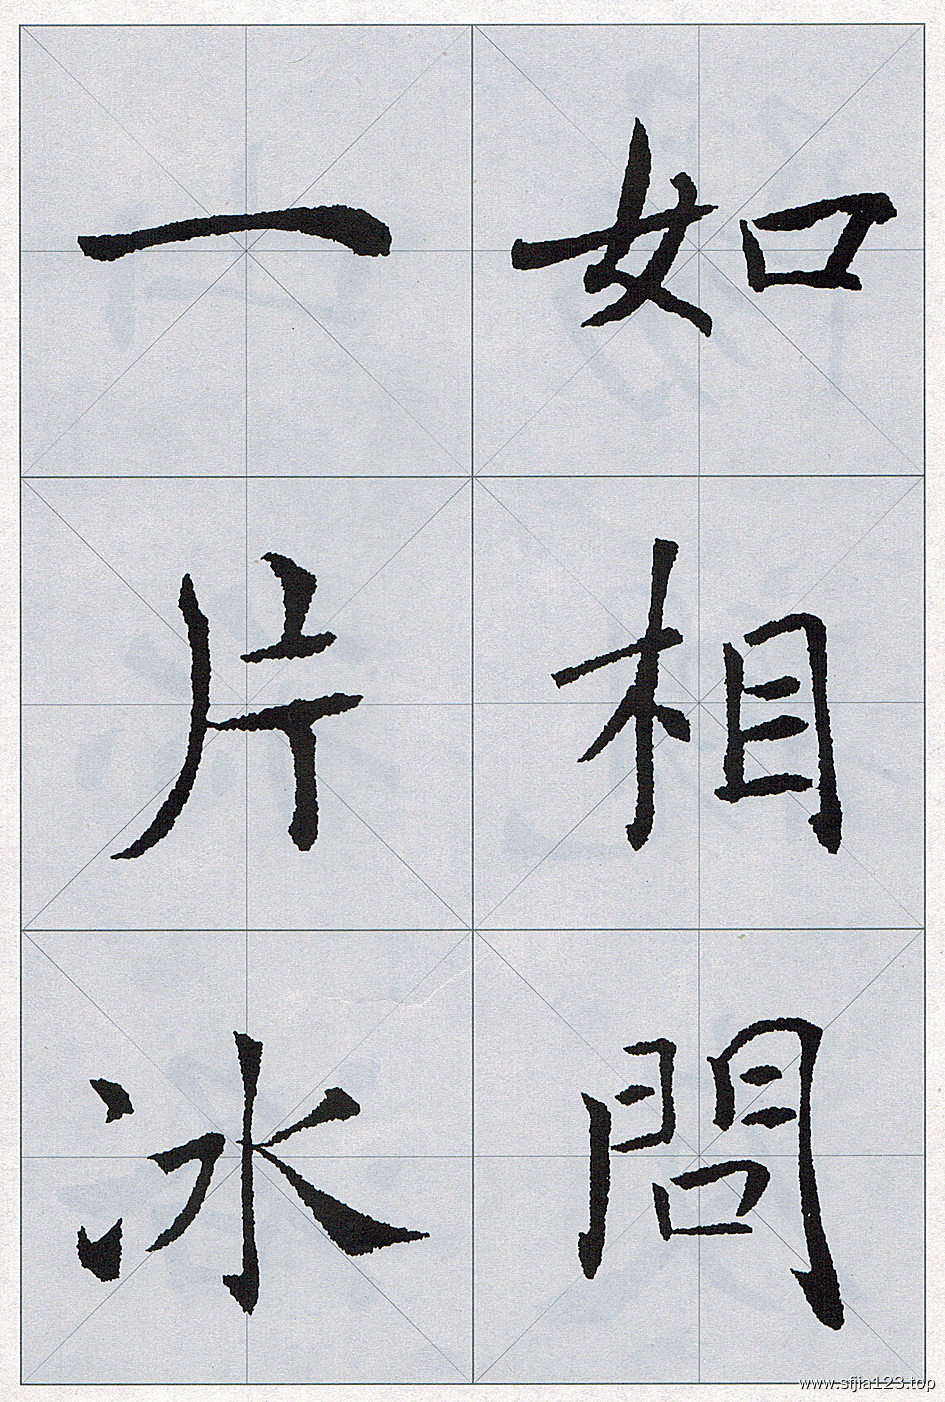 如相問
一片冰
www.sfjia123.top